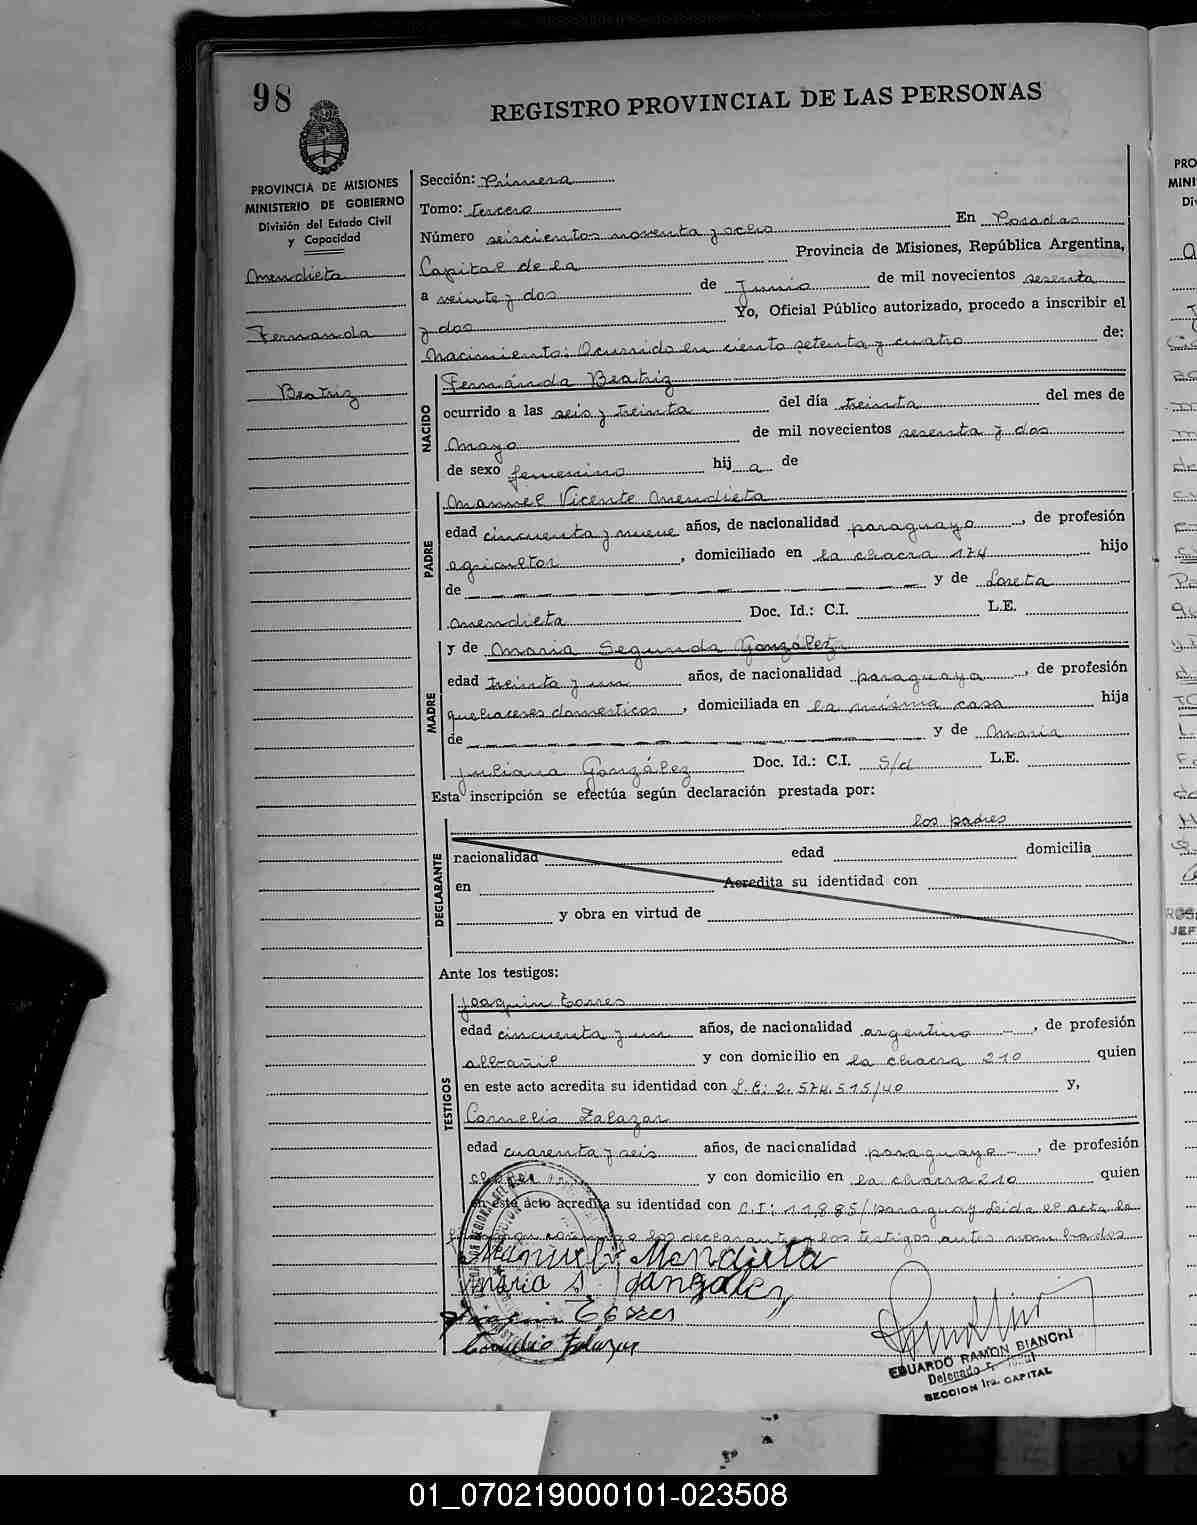 98
REGISTRO PROVINCIAL DE LAS PERSONAS
PROVINCIA DE MISIONES
MINISTERIO DE GOBIERNO
División del Estado Civil
y Capacidad
Mendieta
Fernanda
Beatriz
Sección: Primera
Tomo: tercero
Número seiscientos noventa y ocho En Posadas
Capital de la Provincia de Misiones, República Argentina,
a veinte y dos de Junio de mil novecientos sesenta
y dos Yo, Oficial Público autorizado, procedo a inscribir el
Nacimiento: Ocurrido en ciento setenta y cuatro de:
NACIDO
Fernánda Beatriz
ocurrido a las seis y treinta del día treinta del mes de
Mayo de mil novecientos sesenta y dos
de sexo femenino hij a de
PADRE
Manuel Vicente Mendieta
edad cincuenta y nueve años, de nacionalidad paraguayo, de profesión
agricultor, domiciliado en la chacra 174 hijo
de y de Loreta
Mendieta Doc. Id.: C.I. L.E.
MADRE
y de Maria Segunda González
edad treinta y un años, de nacionalidad paraguaya, de profesión
quehaceres domesticos, domiciliada en la misma casa hija
de y de Maria
Juliana González Doc. Id.: C.I. S/d L.E.
Esta inscripción se efectúa según declaración prestada por:
DECLARANTE
los padres
nacionalidad edad domicilia
en Acredita su identidad con
y obra en virtud de
Ante los testigos:
TESTIGOS
Joaquin Torres
edad cincuenta y un años, de nacionalidad argentino, de profesión
albañil y con domicilio en la chacra 210 quien
en este acto acredita su identidad con L.E: 2.574.515/40 y,
Cornelio Zalazar
edad cuarenta y seis años, de nacionalidad paraguayo, de profesión
y con domicilio en la chacra 210 quien
en este acto acredita su identidad con C.I: 11,885/paraguay Leida el acta la
los declarantes y los testigos antes nombrados
Manuel V Mendieta
maria S gonzalez
Joaquin Torres
Cornelio Zalazar
EDUARDO RAMON BIANCHI
Delegado
SECCION 1ra. CAPITAL
PRO
MINI
01_070219000101-023508